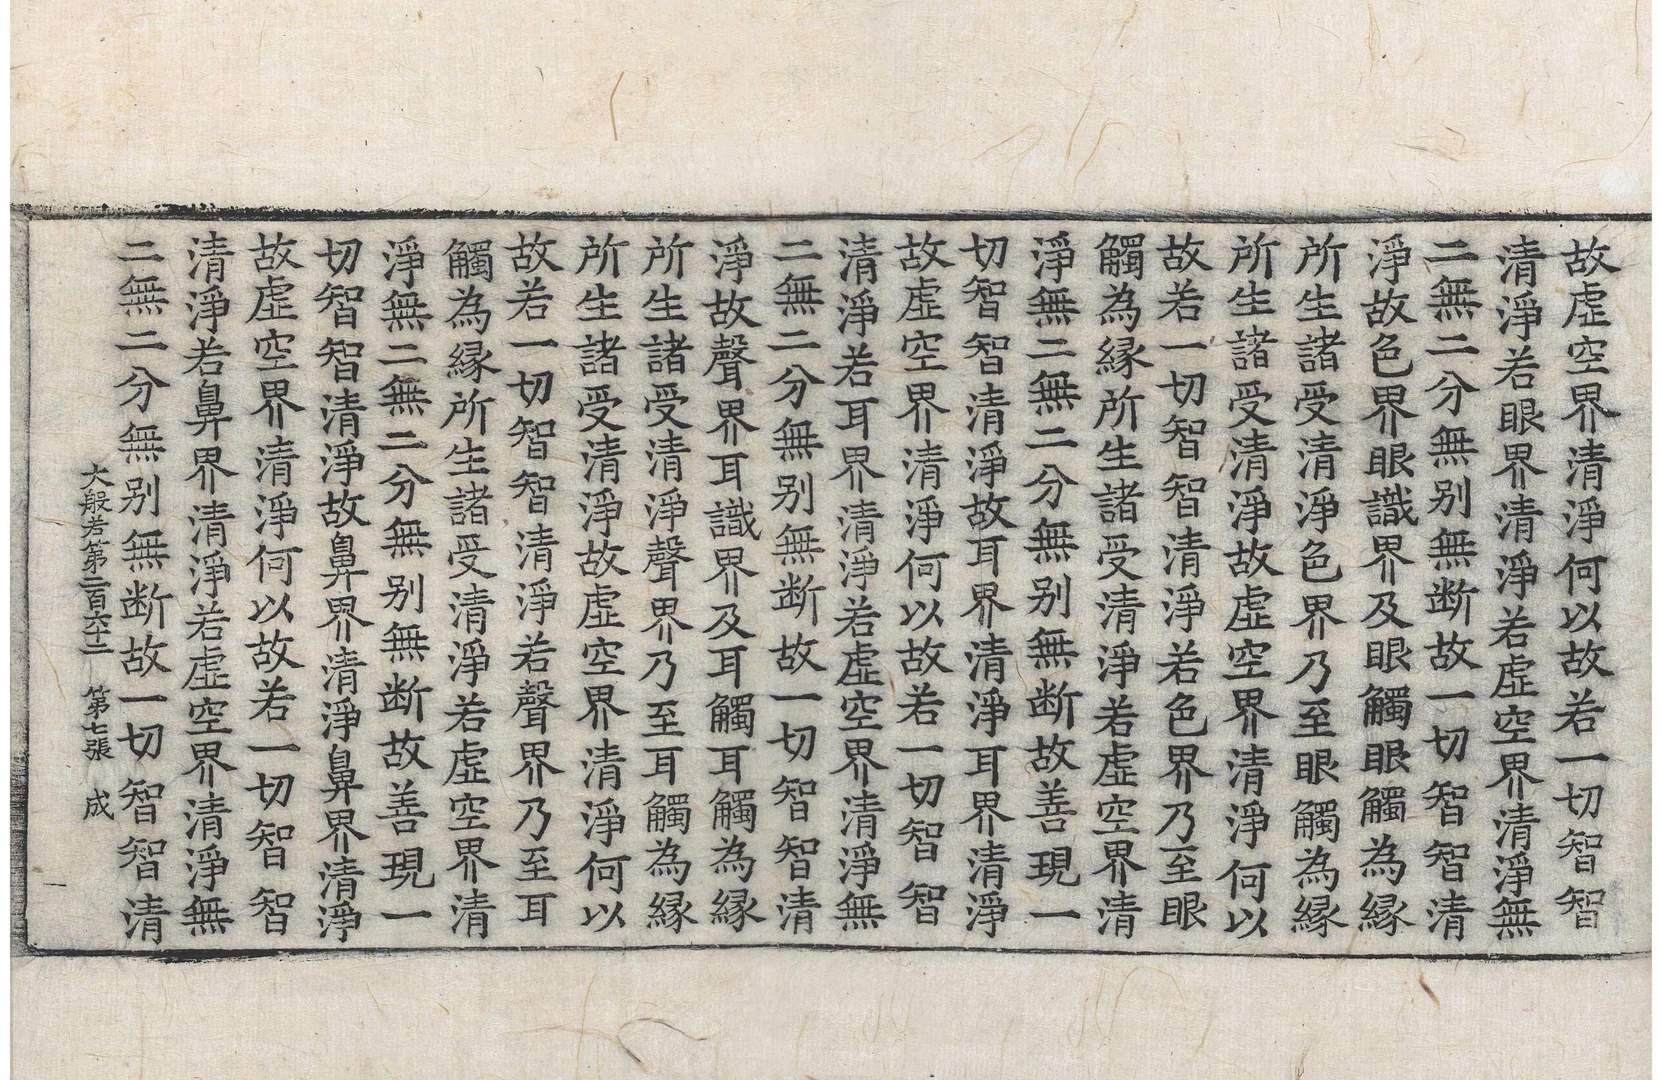 故虛空界清淨何以故若一切智智
清淨若眼界清淨若虛空界清淨無
二無二分無别無断故一切智智清
淨故色界眼識界及眼觸眼觸為縁
所生諸受清淨色界乃至眼觸為縁
所生諸受清淨故虛空界清淨何以
故若一切智智清淨若色界乃至眼
觸為縁所生諸受清淨若虛空界清
淨無二無二分無别無断故善現一
切智智清淨故耳界清淨耳界清淨
故虛空界清淨何以故若一切智智
清淨若耳界清淨若虛空界清淨無
二無二分無别無断故一切智智清
淨故聲界耳識界及耳觸耳觸為縁
所生諸受清淨聲界乃至耳觸為縁
所生諸受清淨故虛空界清淨何以
故若一切智智清淨若聲界乃至耳
觸為縁所生諸受清淨若虛空界清
淨無二無二分無别無断故善現一
切智智清淨故鼻界清淨鼻界清淨
故虛空界清淨何以故若一切智智
清淨若鼻界清淨若虛空界清淨無
二無二分無别無断故一切智智清
大般若第二百六十二 第七張 成